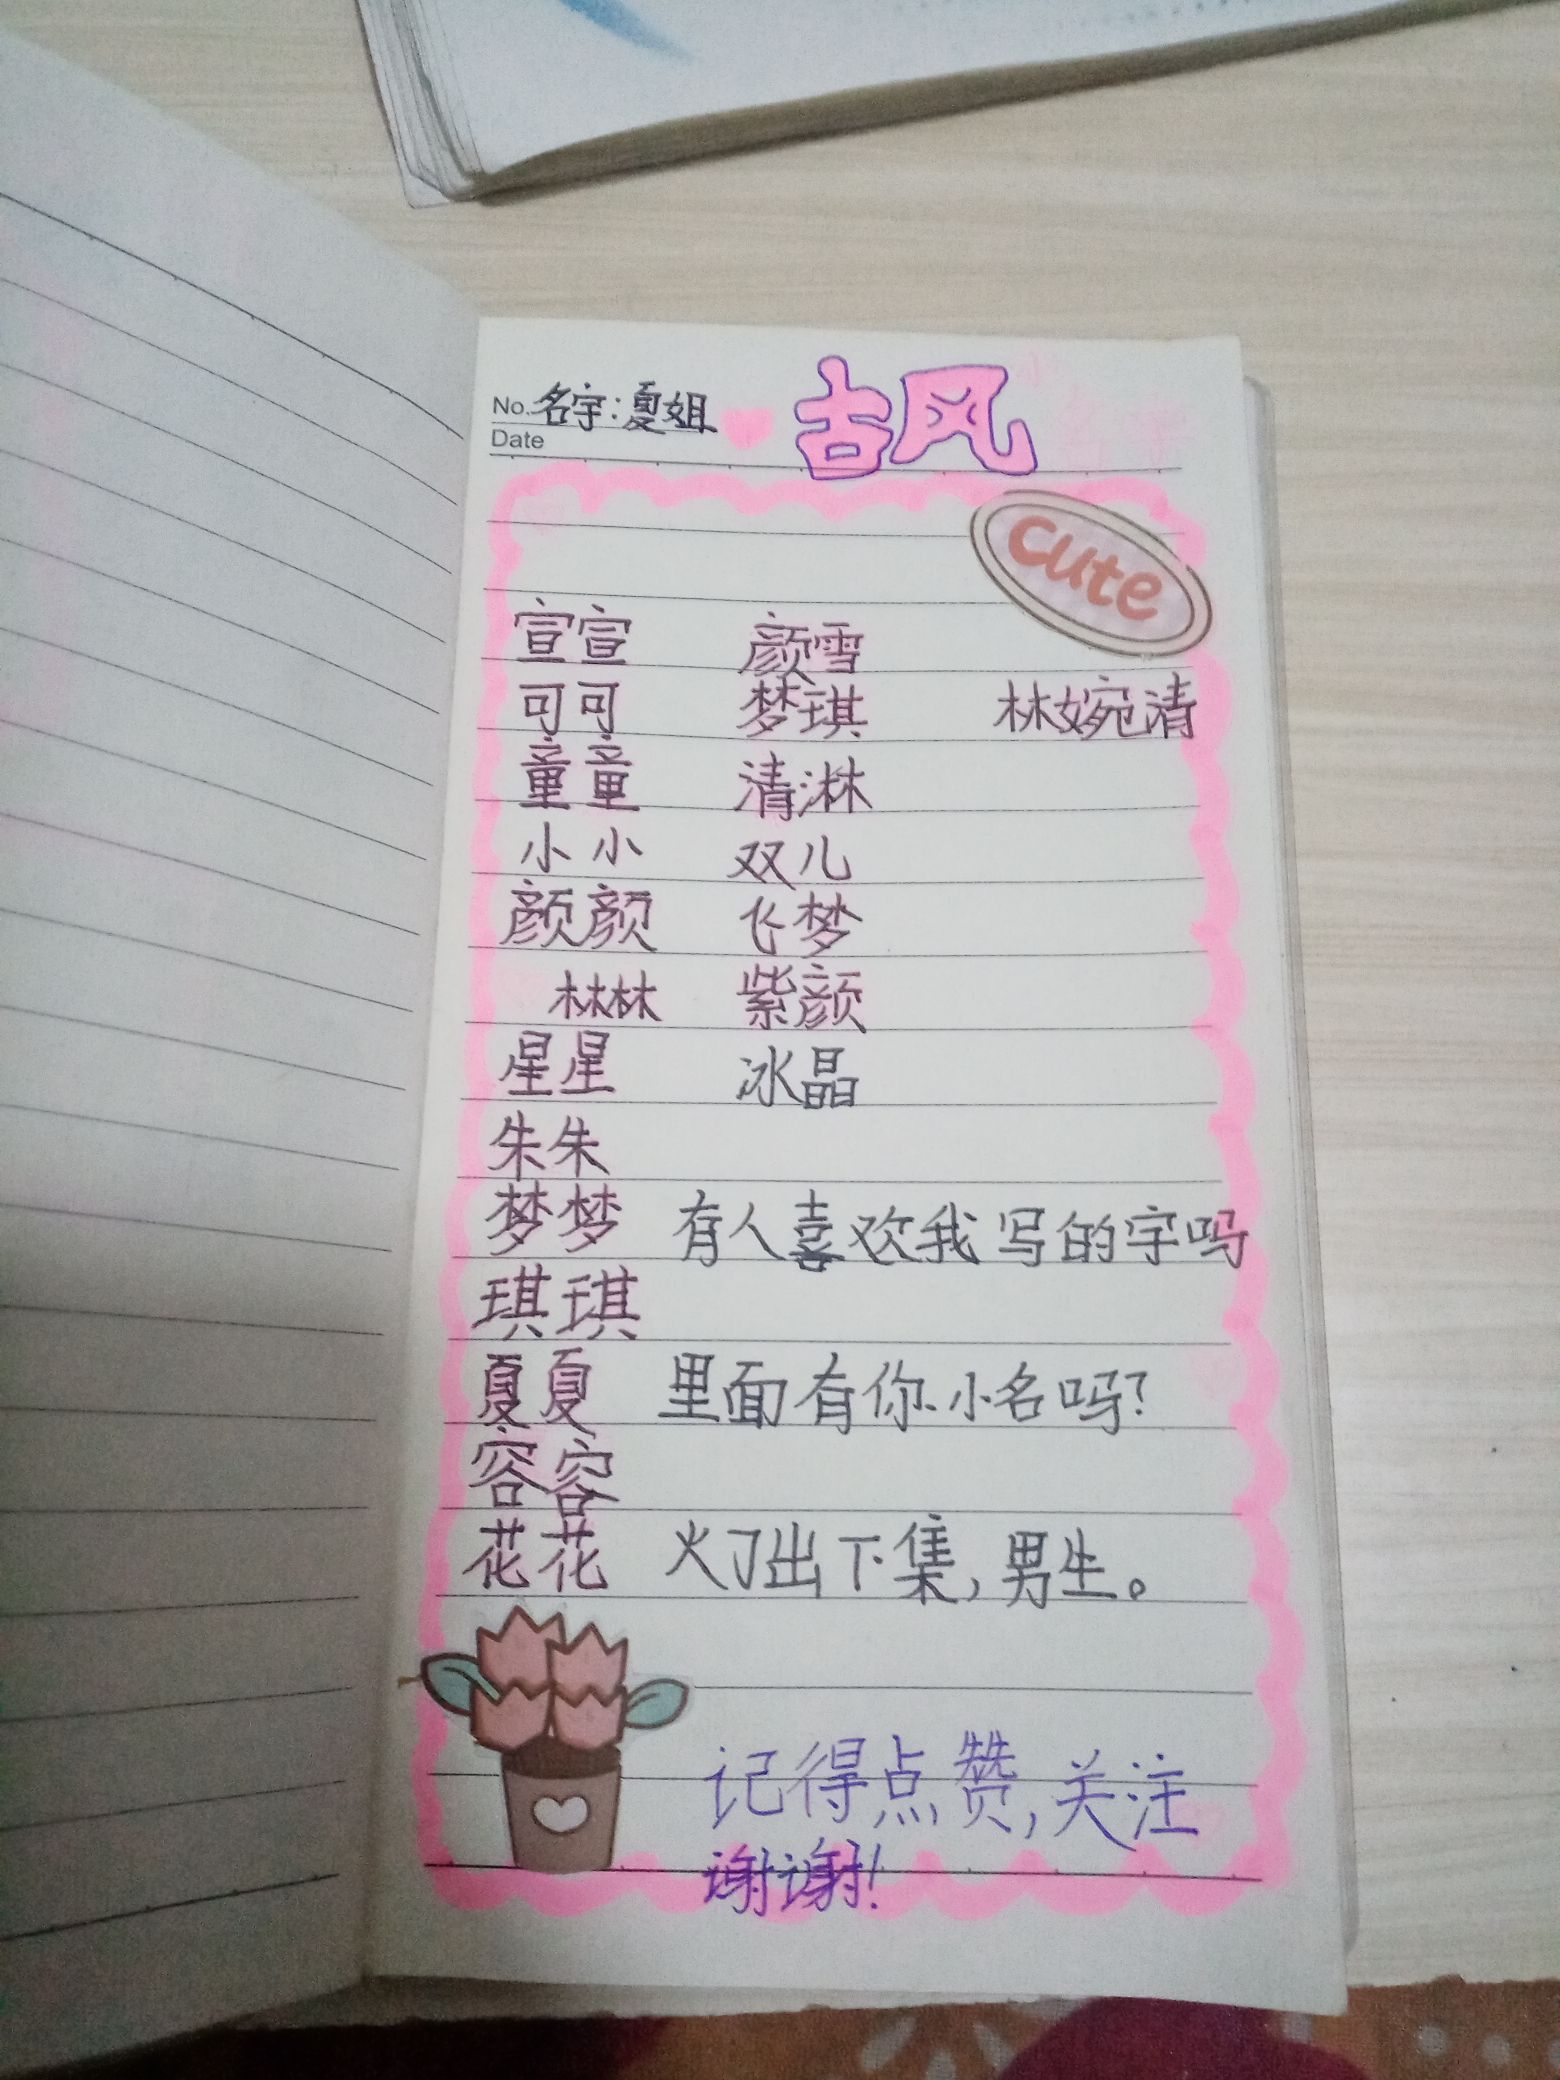 No. 名字:夏姐 古风
Date
cute
宣宣 颜雪
可可 梦琪 林婉清
童童 清淋
小小 双儿
颜颜 飞梦
林林 紫颜
星星 冰晶
朱朱
梦梦 有人喜欢我写的字吗
琪琪
夏夏 里面有你小名吗?
容容
花花 火了出下集,男生。
记得点赞,关注
谢谢!